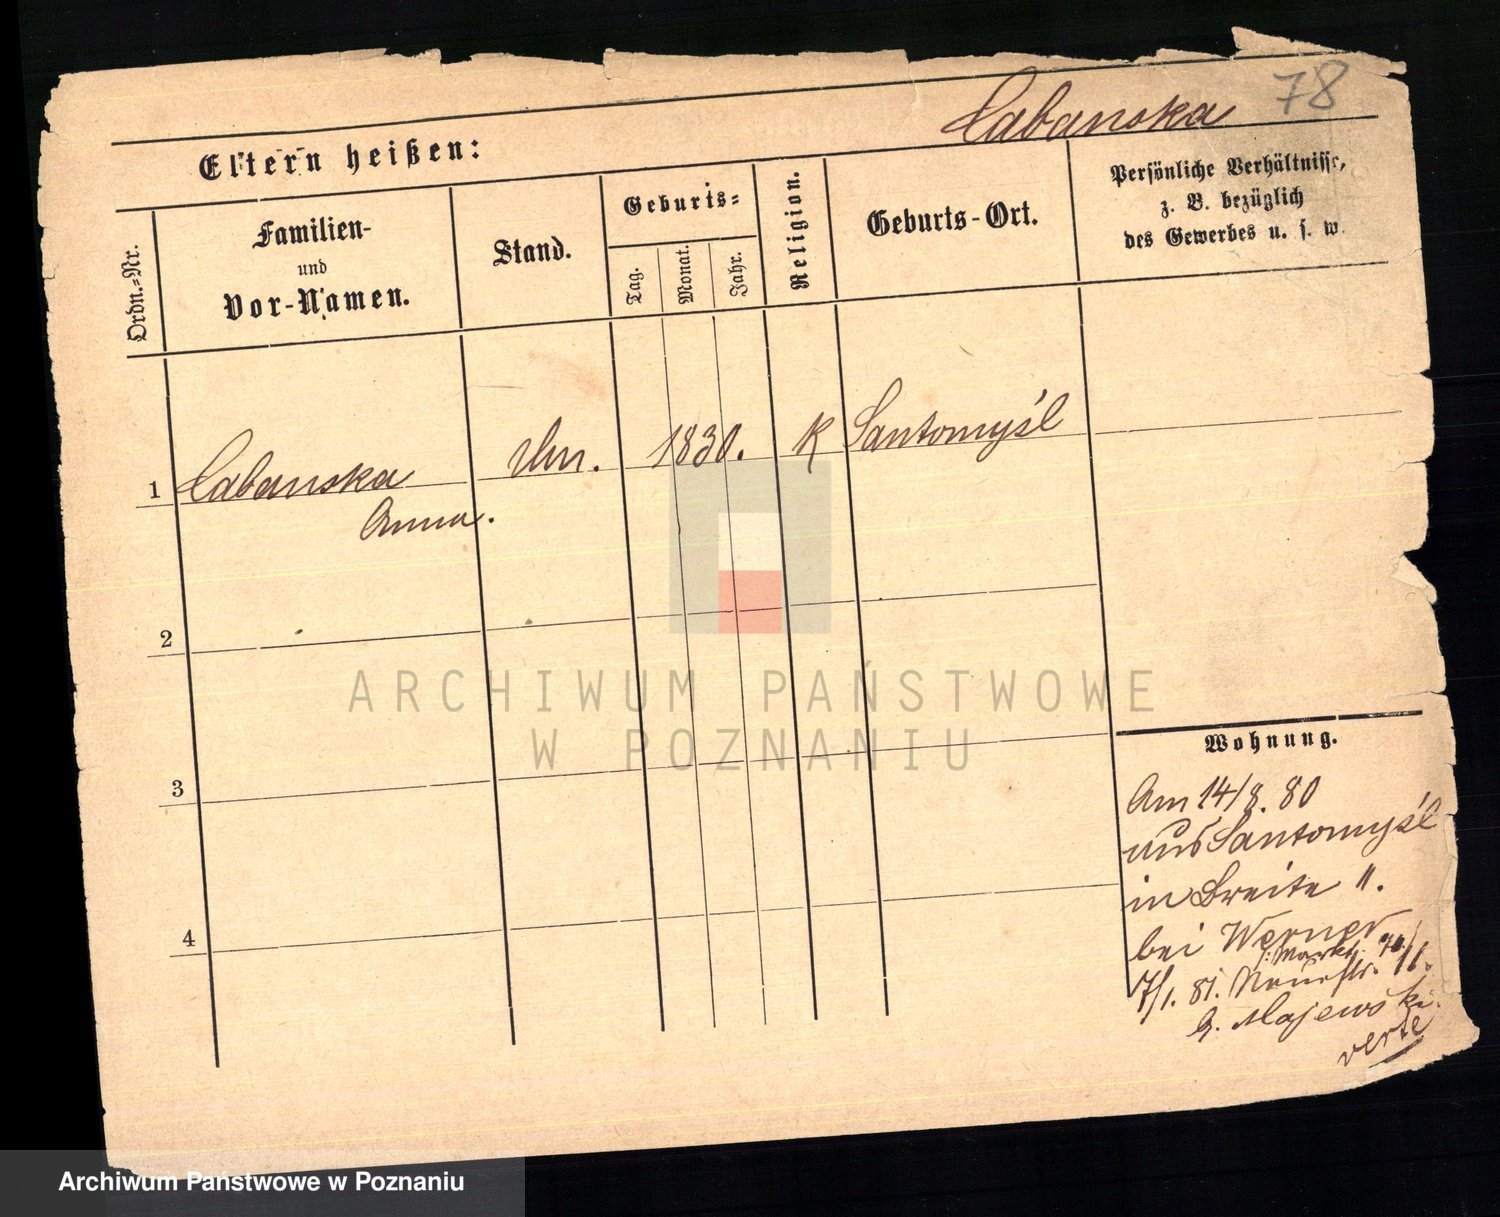 78
Łabanska
Eltern heißen:
Ordn.-Nr.
Familien-
und
Vor-Namen.
Stand.
Geburts-
Tag.
Monat.
Jahr.
Religion.
Geburts-Ort.
Persönliche Verhältnisse,
z. B. bezüglich
des Gewerbes u. s. w.
1 Łabanska 1830. K Santomyśl
Anna.
2
3
4
Wohnung.
Am 14/8. 80
aus Santomyśl
in Breite 11.
bei Werner
7/1. 81. Neuestr. 11.
Majewski
verte
ARCHIWUM PAŃSTWOWE
W POZNANIU
Archiwum Państwowe w Poznaniu